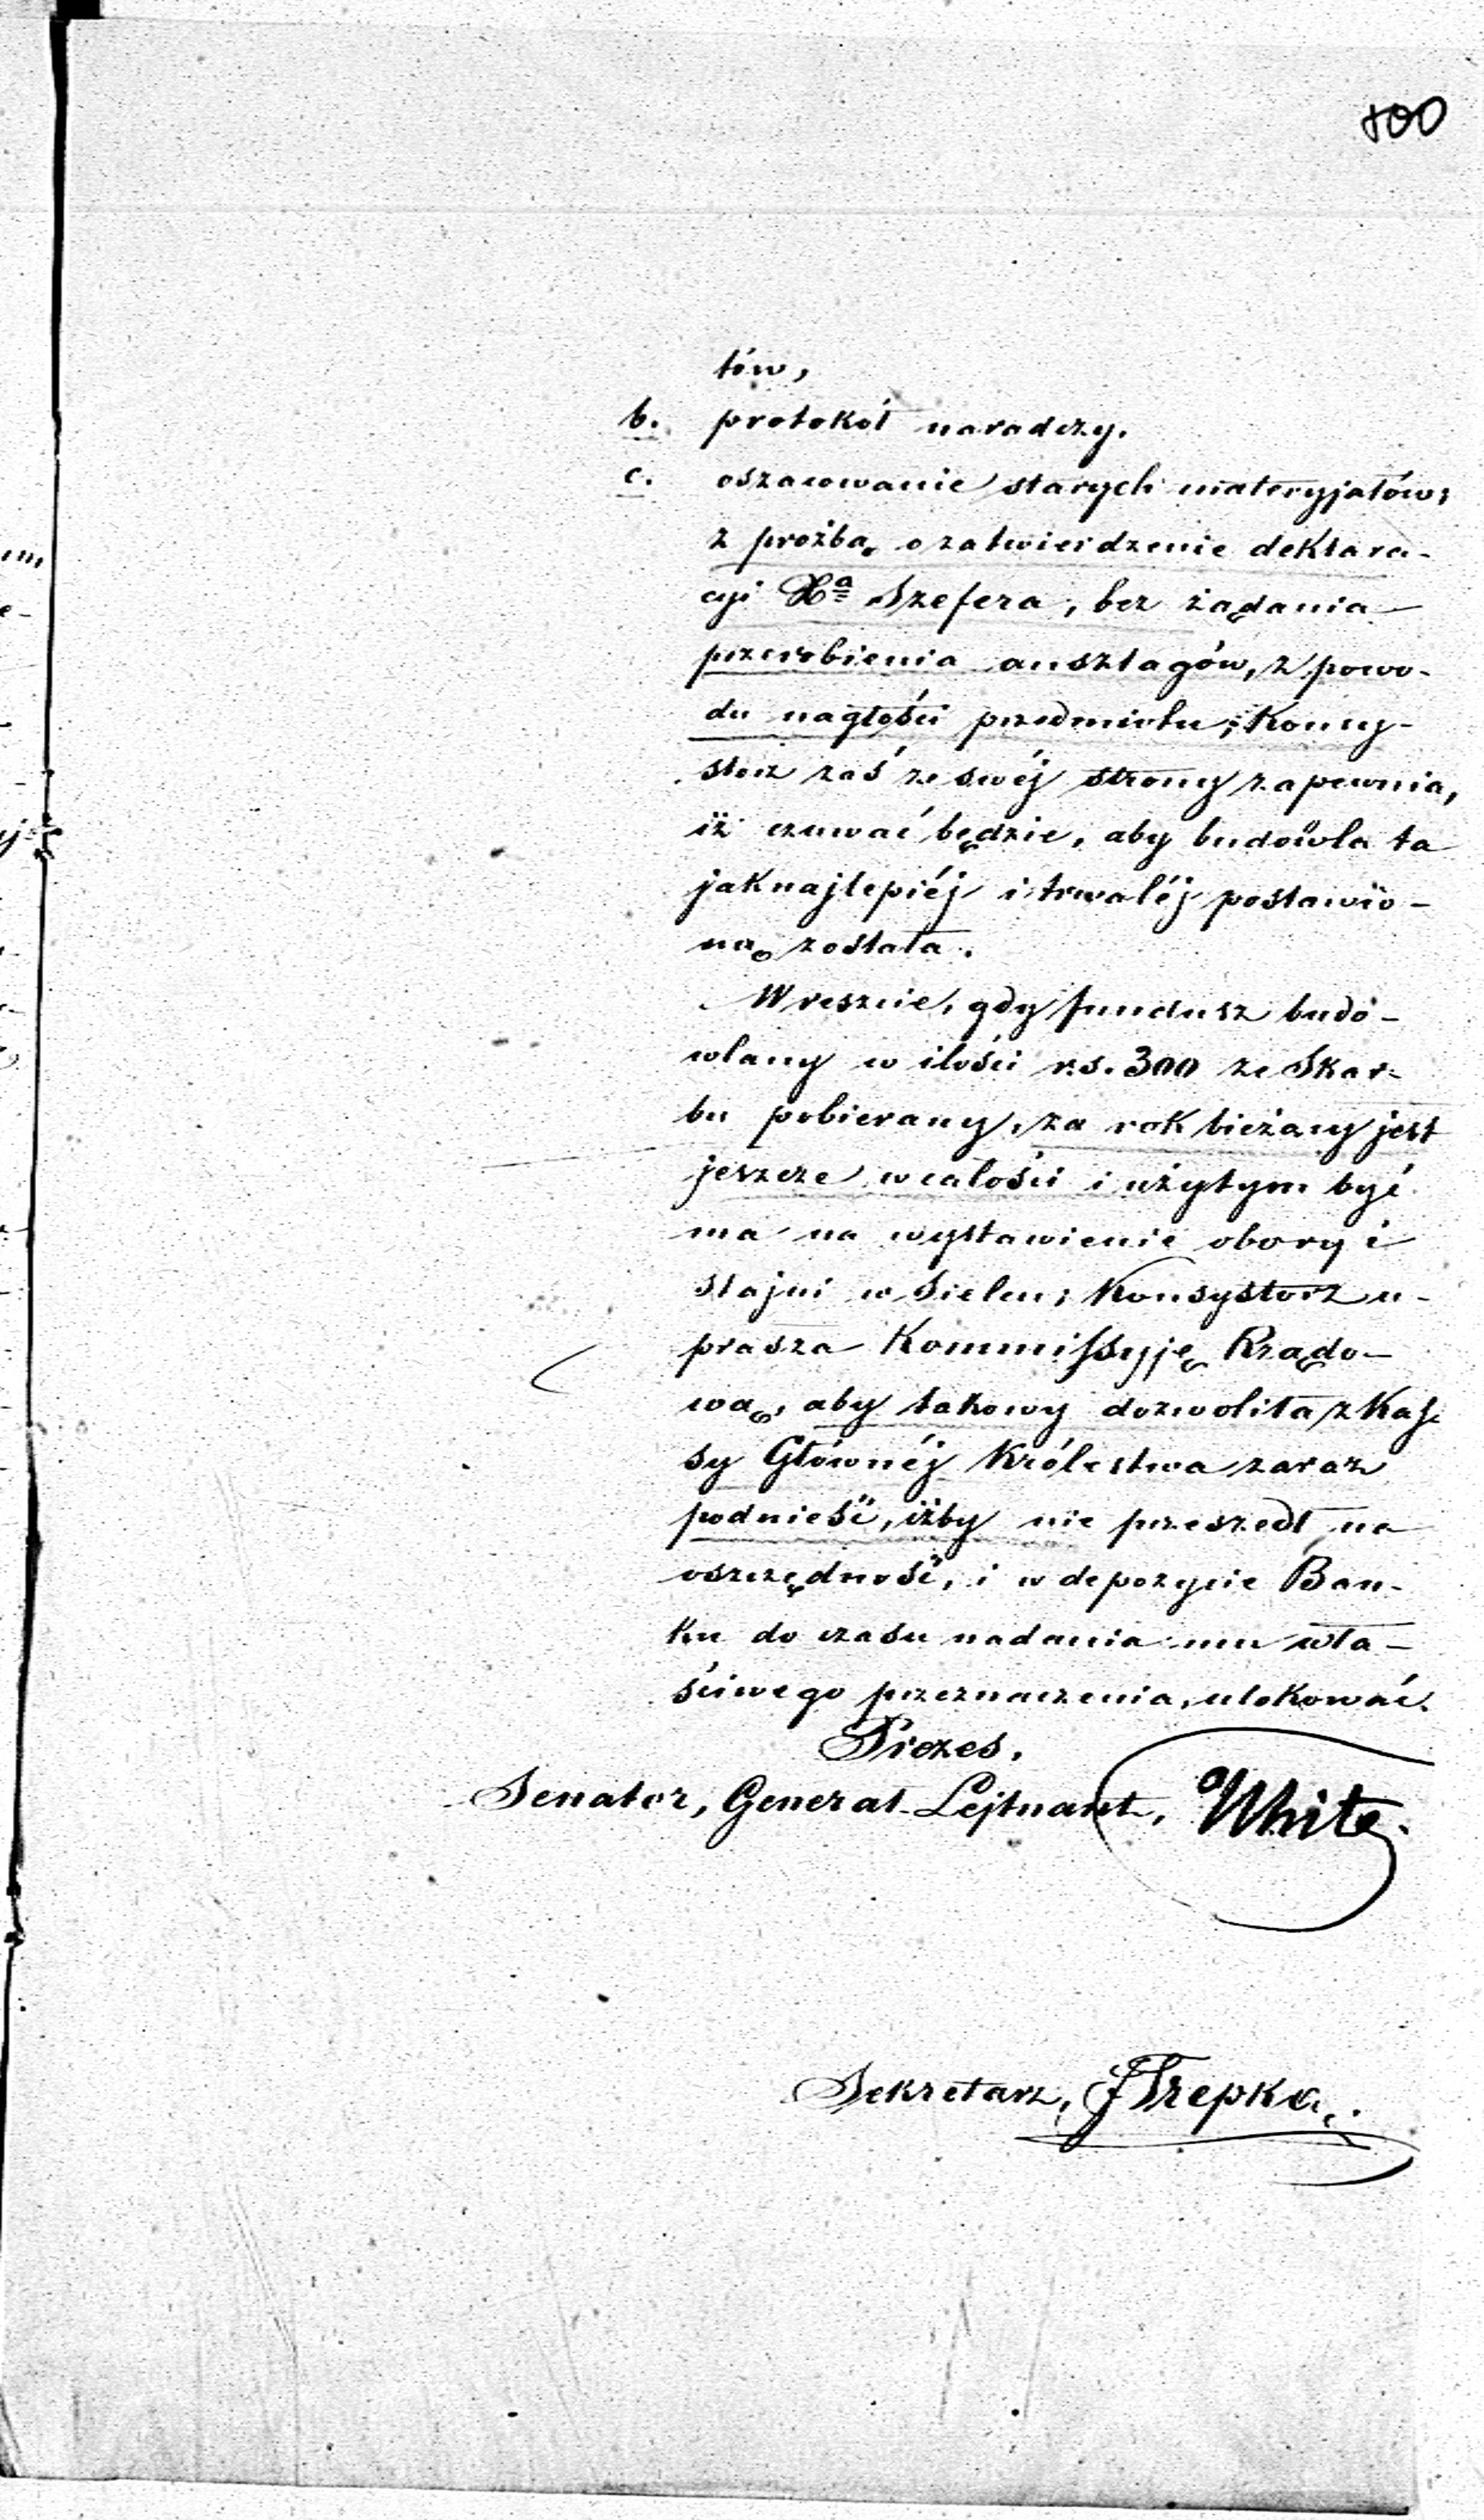 100
tów,
b. protokół naradczy.
c. oszacowanie starych materyjałów;
z prożbą o zatwierdzenie deklara-
cyi Xa Szefera, bez żądania
przerobienia anszlagów, z powo-
du nagłości przedmiotu; Konsy-
storz zaś ze swéj strony zapewnia,
iż czuwać będzie, aby budowla ta
jaknajlepiéj i trwaléj postawio-
ną została.
Wreszcie, gdy fundusz budo-
wlany w ilości r.s. 300 ze Skar-
bu pobierany, za rok bieżący jest
jeszcze w całości i użytym być
ma na wystawienie obory i
stajni w Sielcu; Konsystorz u-
prasza Kommissyję Rządo-
wą, aby takowy dozwoliła z Kas-
sy Głównéj Królestwa zaraz
podnieść, iżby nie przeszedł na
oszczędność, i w depozycie Ban-
ku do czasu nadania mu wła-
ściwego przeznaczenia, ulokować.
Prezes,
Senator, Generał-Lejtnant, White.
Sekretarz, JTrepka.